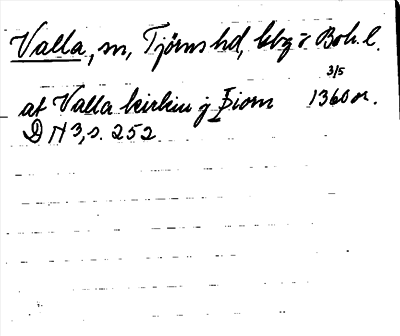 Valla, sn, Tjörns hd, Gbg o Boh. l.
3/5
at Valla kirkiu j Þiorn 1360 or.
DN 3, s. 252